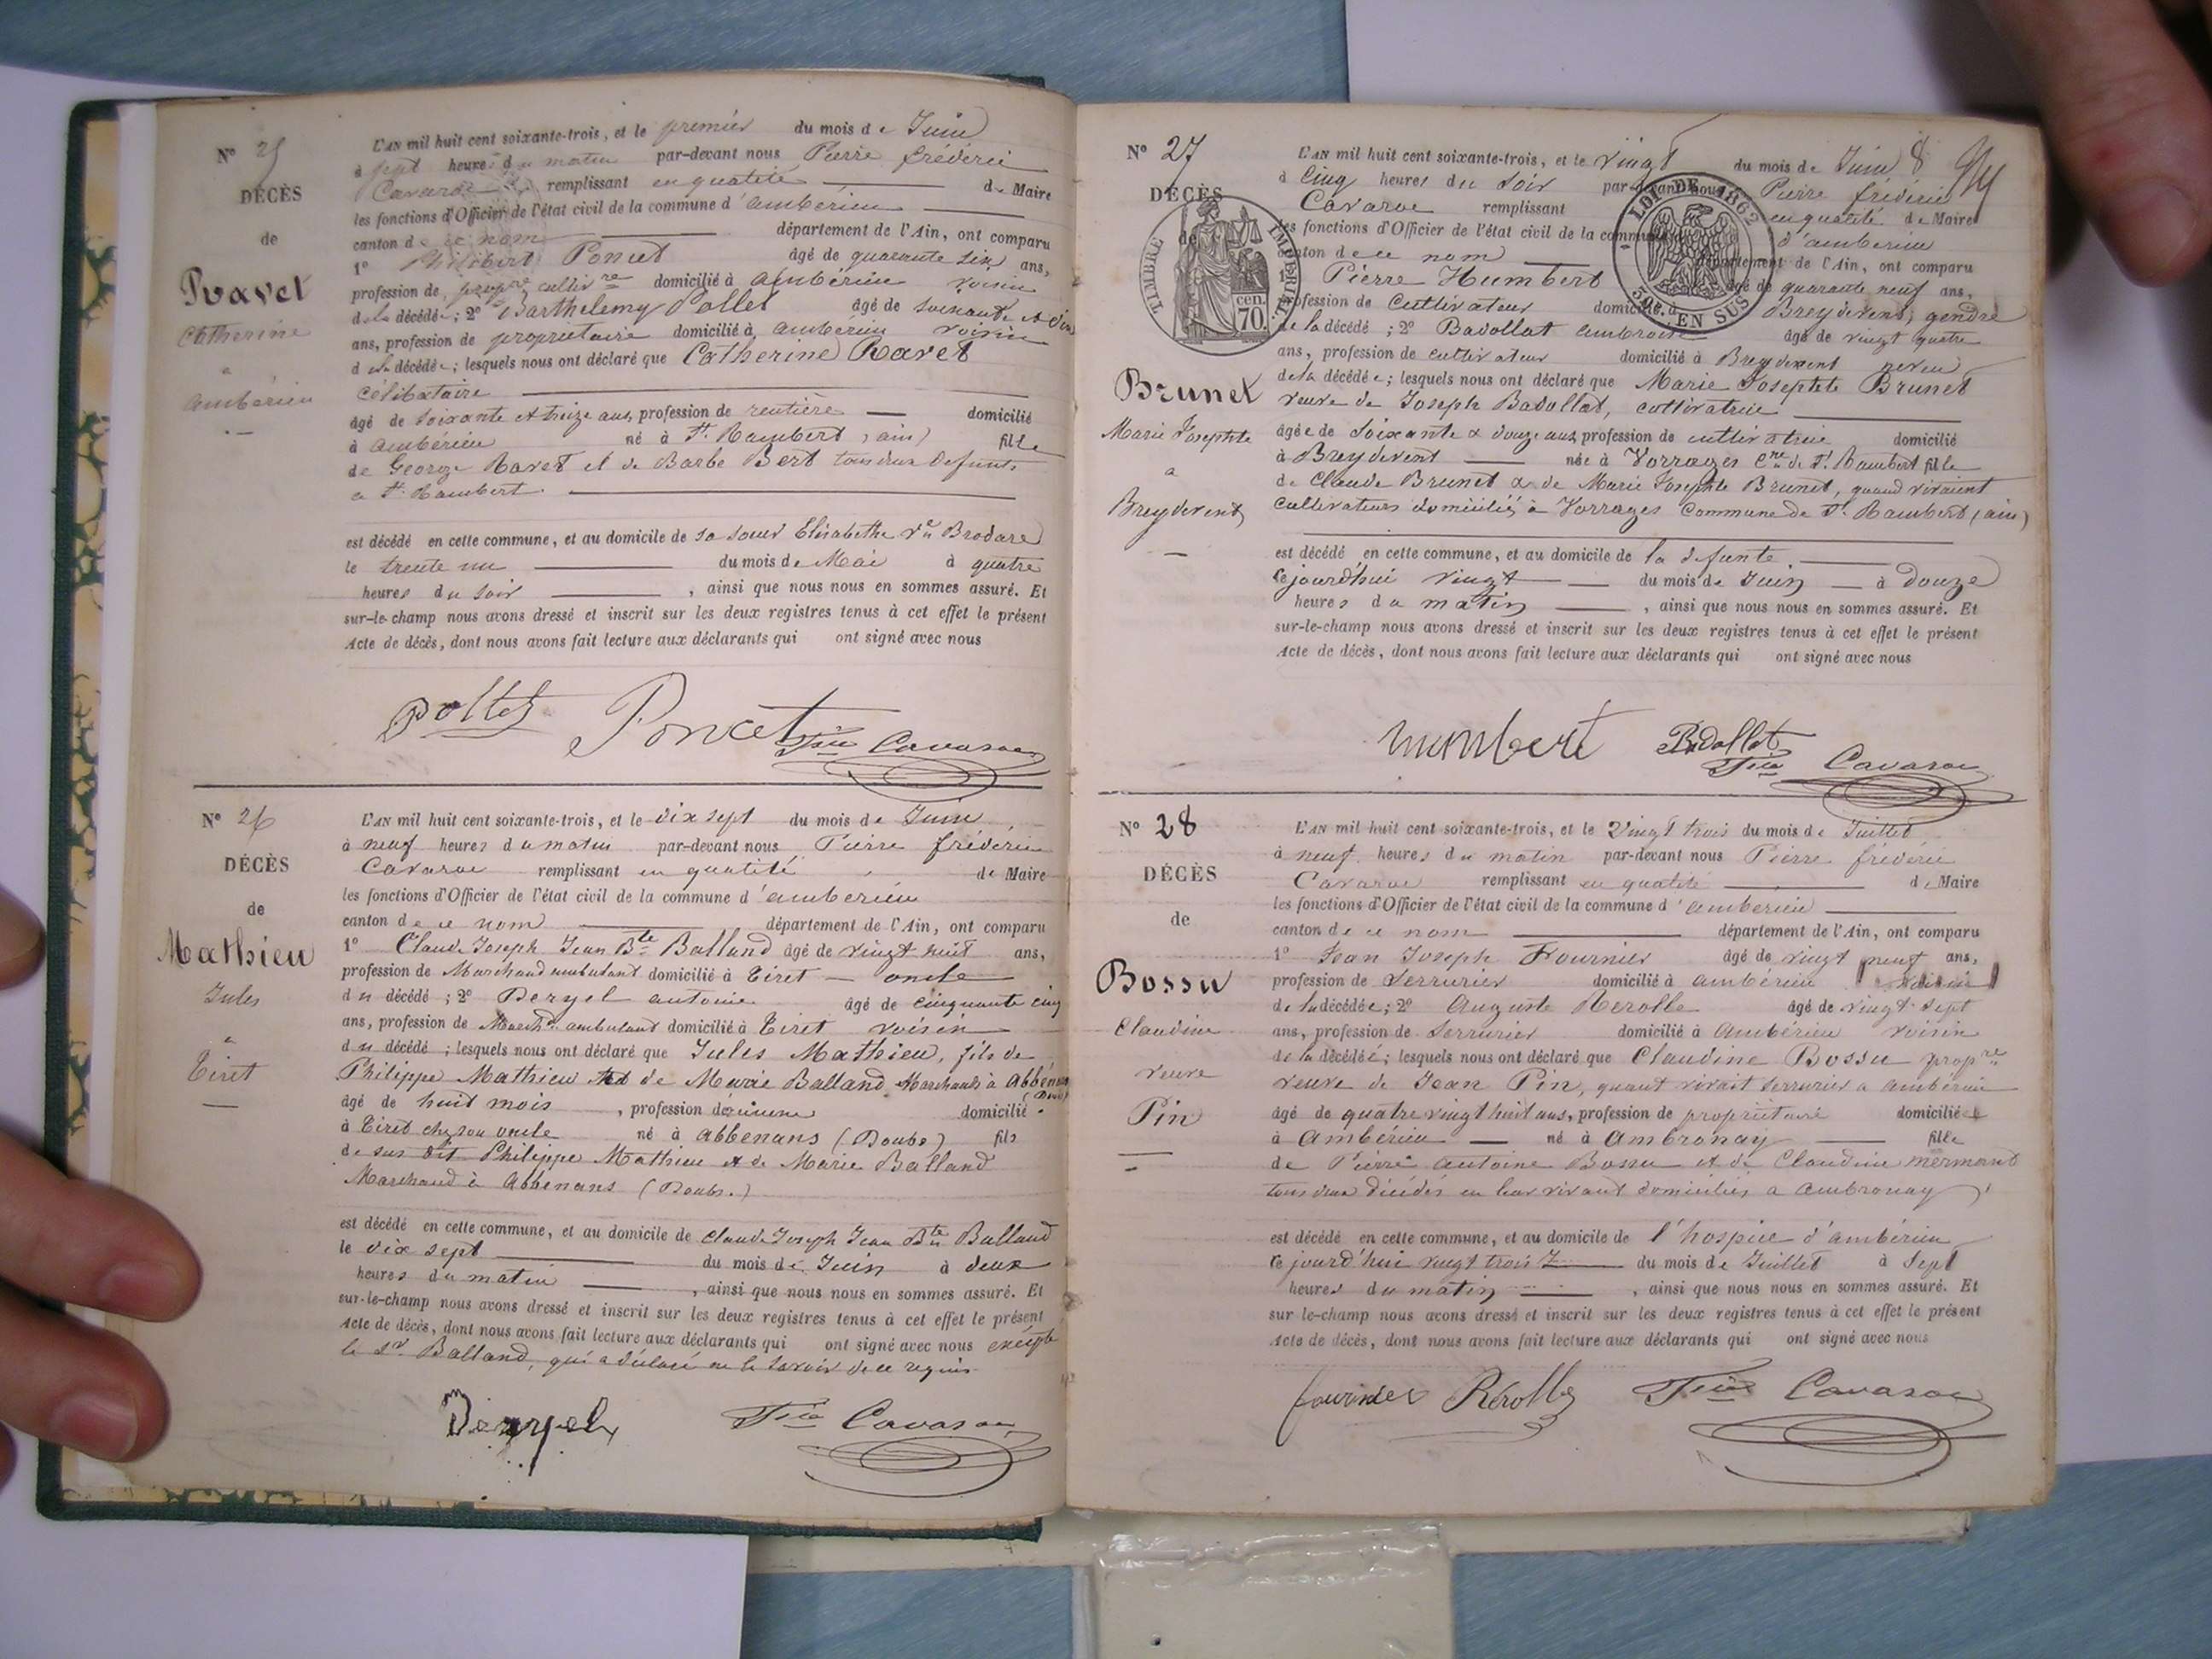 Nº 25
DÉCÈS
de
Ravet
Catherine
a
ambérieu
L'AN mil huit cent soixante-trois, et le premier du mois de Juin
à sept heures du matin par-devant nous Pierre fréderic
Cavaroc remplissant en qualité de Maire
les fonctions d'Officier de l'état civil de la commune d'ambérieu
canton de ce nom département de l'Ain, ont comparu
1º Philibert Poncet âgé de quarante six ans,
profession de propre cultivre domicilié à ambérieu voisin
de la décédée; 2º Barthelemy Pollet âgé de soixante et
ans, profession de propriétaire domicilié à ambérieu voisin
de la décédée; lesquels nous ont déclaré que Catherine Ravet
célibataire
âgé de soixante et treize ans, profession de rentière domicilié
à ambérieu né à St. Rambert (ain) fille
de George Ravet et de Barbe Bert tous deux défunts
a St. Rambert.
est décédé en cette commune, et au domicile de sa sœur Elisabethe ve Brodare
le trente un du mois de Mai à quatre
heures du soir, ainsi que nous nous en sommes assuré. Et
sur-le-champ nous avons dressé et inscrit sur les deux registres tenus à cet effet le présent
Acte de décès, dont nous avons fait lecture aux déclarants qui ont signé avec nous
Pollet Poncet Fric Cavaroc
Nº 26
DÉCÈS
de
Mathieu
Jules
a
Tiret
L'AN mil huit cent soixante-trois, et le dix sept du mois de Juin
à neuf heures du matin par-devant nous Pierre fréderic
Cavaroc remplissant en qualité de Maire
les fonctions d'Officier de l'état civil de la commune d'ambérieu
canton de ce nom département de l'Ain, ont comparu
1º Claude Joseph Jean Bte Balland âgé de vingt huit ans,
profession de Marchand ambulant domicilié à Tiret oncle
du décédé; 2º Deryel antoine âgé de cinquante cinq
ans, profession de Marchd ambulant domicilié à Tiret voisin
du décédé; lesquels nous ont déclaré que Jules Mathieu, fils de
Philippe Mathieu et de Marie Balland Marchands à Abbenans
(Doubs)
âgé de huit mois, profession domicilié
à Tiret chez son oncle né à abbenans (Doubs) fils
de sus dit Philippe Mathieu et de Marie Balland
Marchand à abbenans (Doubs.)
est décédé en cette commune, et au domicile de Claude Joseph Jean Bte Balland
le dix sept du mois de Juin à deux
heures du matin, ainsi que nous nous en sommes assuré. Et
sur-le-champ nous avons dressé et inscrit sur les deux registres tenus à cet effet le présent
Acte de décès, dont nous avons fait lecture aux déclarants qui ont signé avec nous excepté
le sr Balland, qui a déclaré ne le savoir de ce requis.
Deryel Fric Cavaroc
Nº 27
DÉCÈS
de
TIMBRE IMPÉRIAL
cen.
70
LOI DE 1862
50c. EN SUS
Brunet
Marie Josephte
a
Breydevent
L'AN mil huit cent soixante-trois, et le vingt du mois de Juin
à cinq heures du soir par-devant nous Pierre fréderic
Cavaroc remplissant en qualité de Maire
les fonctions d'Officier de l'état civil de la commune d'ambérieu
canton de ce nom département de l'Ain, ont comparu
1º Pierre Humbert âgé de quarante neuf ans,
profession de cultivateur domicilié à Breydevent, gendre
de la décédé; 2º Badollat ambroise âgé de vingt quatre
ans, profession de cultivateur domicilié à Breydevent neveu
de la décédée; lesquels nous ont déclaré que Marie Josephte Brunet
veuve de Joseph Badollat, cultivatrice
âgée de soixante & douze ans, profession de cultivatrice domicilié
à Breydevent née à Vorrages Cne de St. Rambert fille
de Claude Brunet & de Marie Josephte Brunet, quand vivaient
cultivateurs domiciliés à Vorrages Commune de St. Rambert (ain)
est décédé en cette commune, et au domicile de la défunte.
Cejourd'hui vingt du mois de Juin à douze
heures du matin, ainsi que nous nous en sommes assuré. Et
sur-le-champ nous avons dressé et inscrit sur les deux registres tenus à cet effet le présent
Acte de décès, dont nous avons fait lecture aux déclarants qui ont signé avec nous
humbert Badollat Fric Cavaroc
Nº 28
DÉCÈS
de
Bossu
Claudine
veuve
Pin
L'AN mil huit cent soixante-trois, et le vingt trois du mois de Juillet
à neuf heures du matin par-devant nous Pierre fréderic
Cavaroc remplissant en qualité de Maire
les fonctions d'Officier de l'état civil de la commune d'ambérieu
canton de ce nom département de l'Ain, ont comparu
1º Jean Joseph Fournier âgé de vingt neuf ans,
profession de serrurier domicilié à ambérieu voisin
de la décédée; 2º Auguste Rerolle âgé de vingt sept
ans, profession de serrurier domicilié à ambérieu voisin
de la décédée; lesquels nous ont déclaré que Claudine Bossu propre
veuve de Jean Pin, quant vivait serrurier a ambérieu
âgé de quatre vingt huit ans, profession de propriétaire domiciliée
à Ambérieu né à Ambronay fille
de Pierre antoine Bossu et de Claudine mermant
tous deux décédés en leur vivant domiciliés a ambronay
est décédé en cette commune, et au domicile de l'hospice d'ambérieu
ce jourd'hui vingt trois du mois de Juillet à sept
heures du matin, ainsi que nous nous en sommes assuré. Et
sur le-champ nous avons dressé et inscrit sur les deux registres tenus à cet effet le présent
Acte de décès, dont nous avons fait lecture aux déclarants qui ont signé avec nous
fournier Rérolle Fric Cavaroc